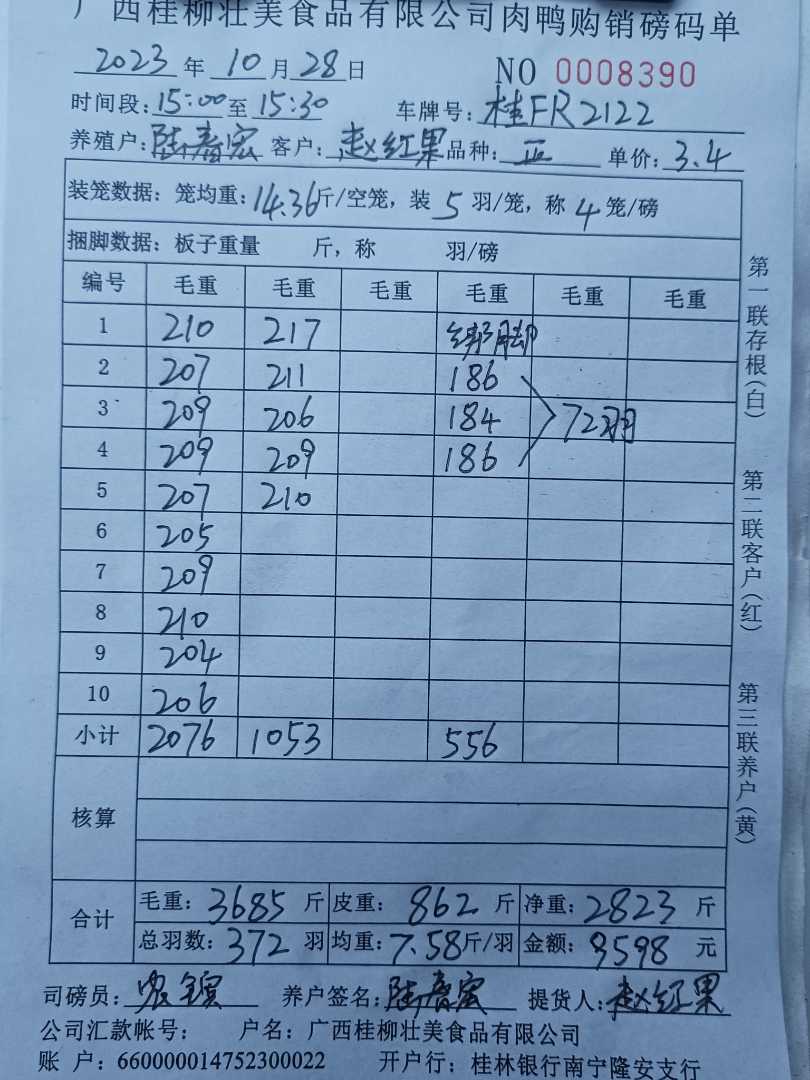 广西桂柳壮美食品有限公司肉鸭购销磅码单
2023年10月28日 NO 0008390
时间段:15:00至15:30 车牌号:桂FR2122
养殖户:陆春宏 客户:赵红果 品种:正 单价:3.4
装笼数据:笼均重:14.36斤/空笼,装5羽/笼,称4笼/磅
捆脚数据:板子重量 斤,称 羽/磅
编号 毛重 毛重 毛重 毛重 毛重 毛重
1 210 217 绑脚
2 207 211 186
3 209 206 184 72羽
4 209 209 186
5 207 210
6 205
7 209
8 210
9 204
10 206
小计 2076 1053 556
核算
合计
毛重:3685斤 皮重:862斤 净重:2823斤
总羽数:372羽 均重:7.58斤/羽 金额:9598元
司磅员: 养户签名:陆春宏 提货人:赵红果
公司汇款帐号: 户名:广西桂柳壮美食品有限公司
账 户:660000014752300022 开户行:桂林银行南宁隆安支行
第一联存根(白)
第二联客户(红)
第三联养户(黄)